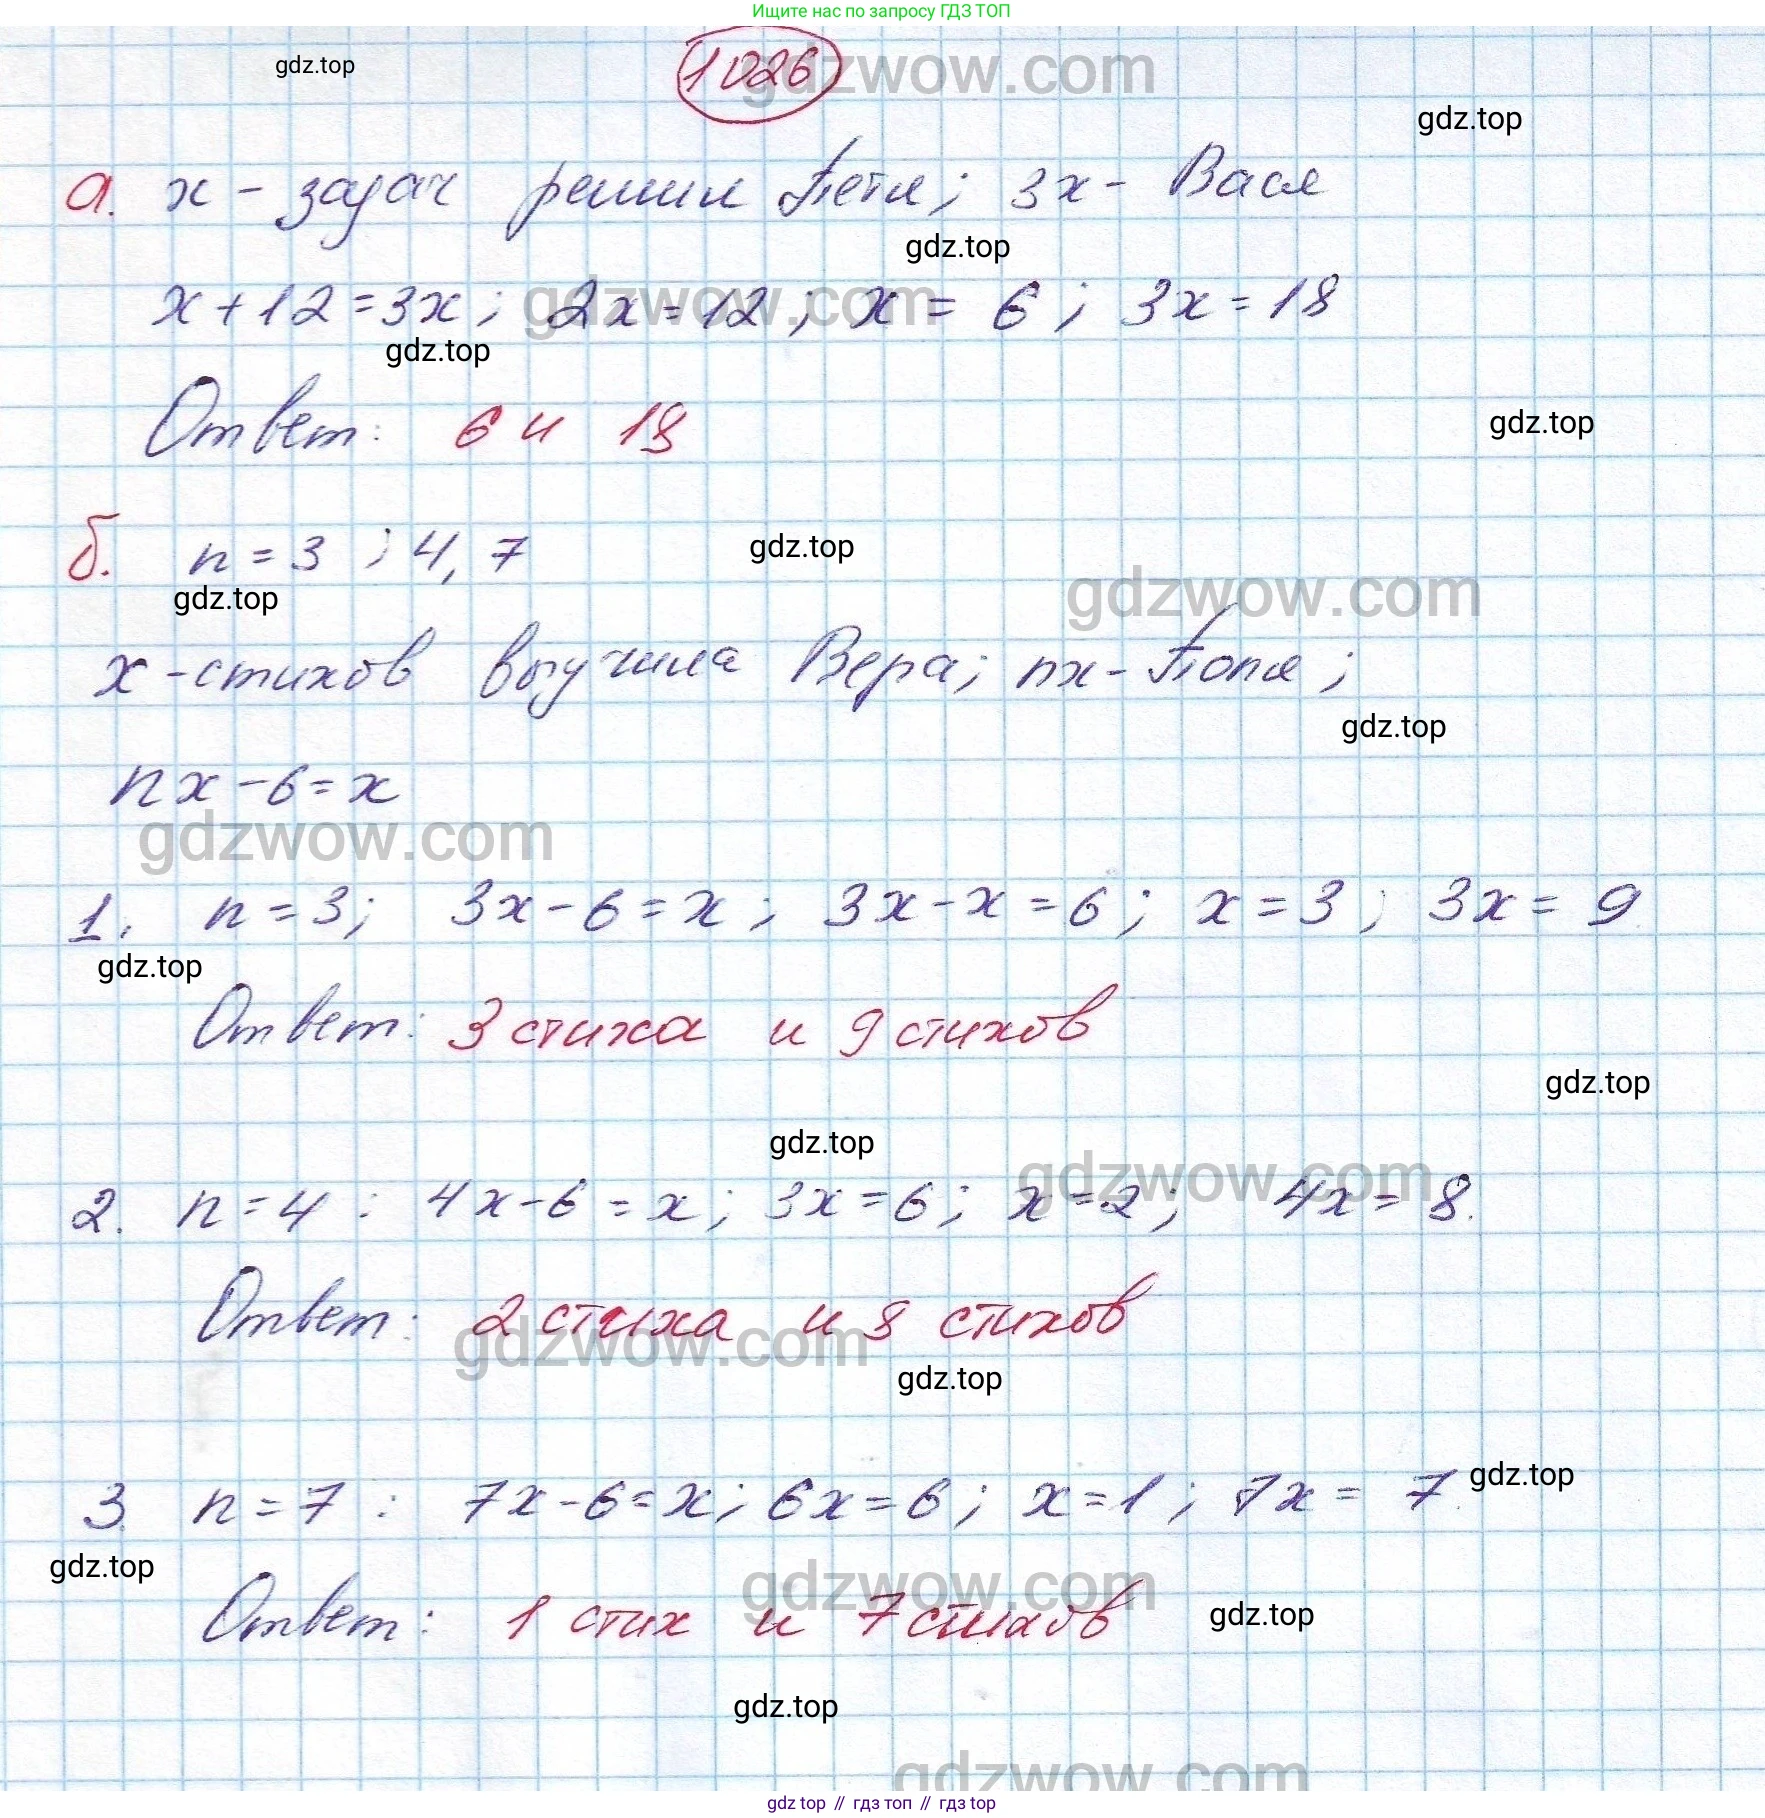 Ищите нас по запросу ГДЗ ТОП
1026
gdzwow.com
gdz.top
gdz.top
а. x - задач решил Петя; 3x - Вася
gdz.top
x + 12 = 3x; 2x = 12; x = 6; 3x = 18
gdzwow.com
gdz.top
Ответ: 6 и 18
gdz.top
б. n = 3; 4, 7
gdz.top
gdz.top
gdzwow.com
x - стихов выучила Вера; nx - Поля;
gdz.top
nx - 6 = x
gdzwow.com
1. n = 3; 3x - 6 = x; 3x - x = 6; x = 3; 3x = 9.
gdz.top
Ответ: 3 стиха и 9 стихов
gdz.top
gdz.top
gdzwow.com
2. n = 4: 4x - 6 = x; 3x = 6; x = 2; 4x = 8.
Ответ: 2 стиха и 8 стихов
gdzwow.com
gdz.top
gdz.top
3. n = 7: 7x - 6 = x; 6x = 6; x = 1; 7x = 7.
gdz.top
gdzwow.com
Ответ: 1 стих и 7 стихов
gdz.top
gdz.top
gdzwow.com
gdz top // гдз топ // гдз top